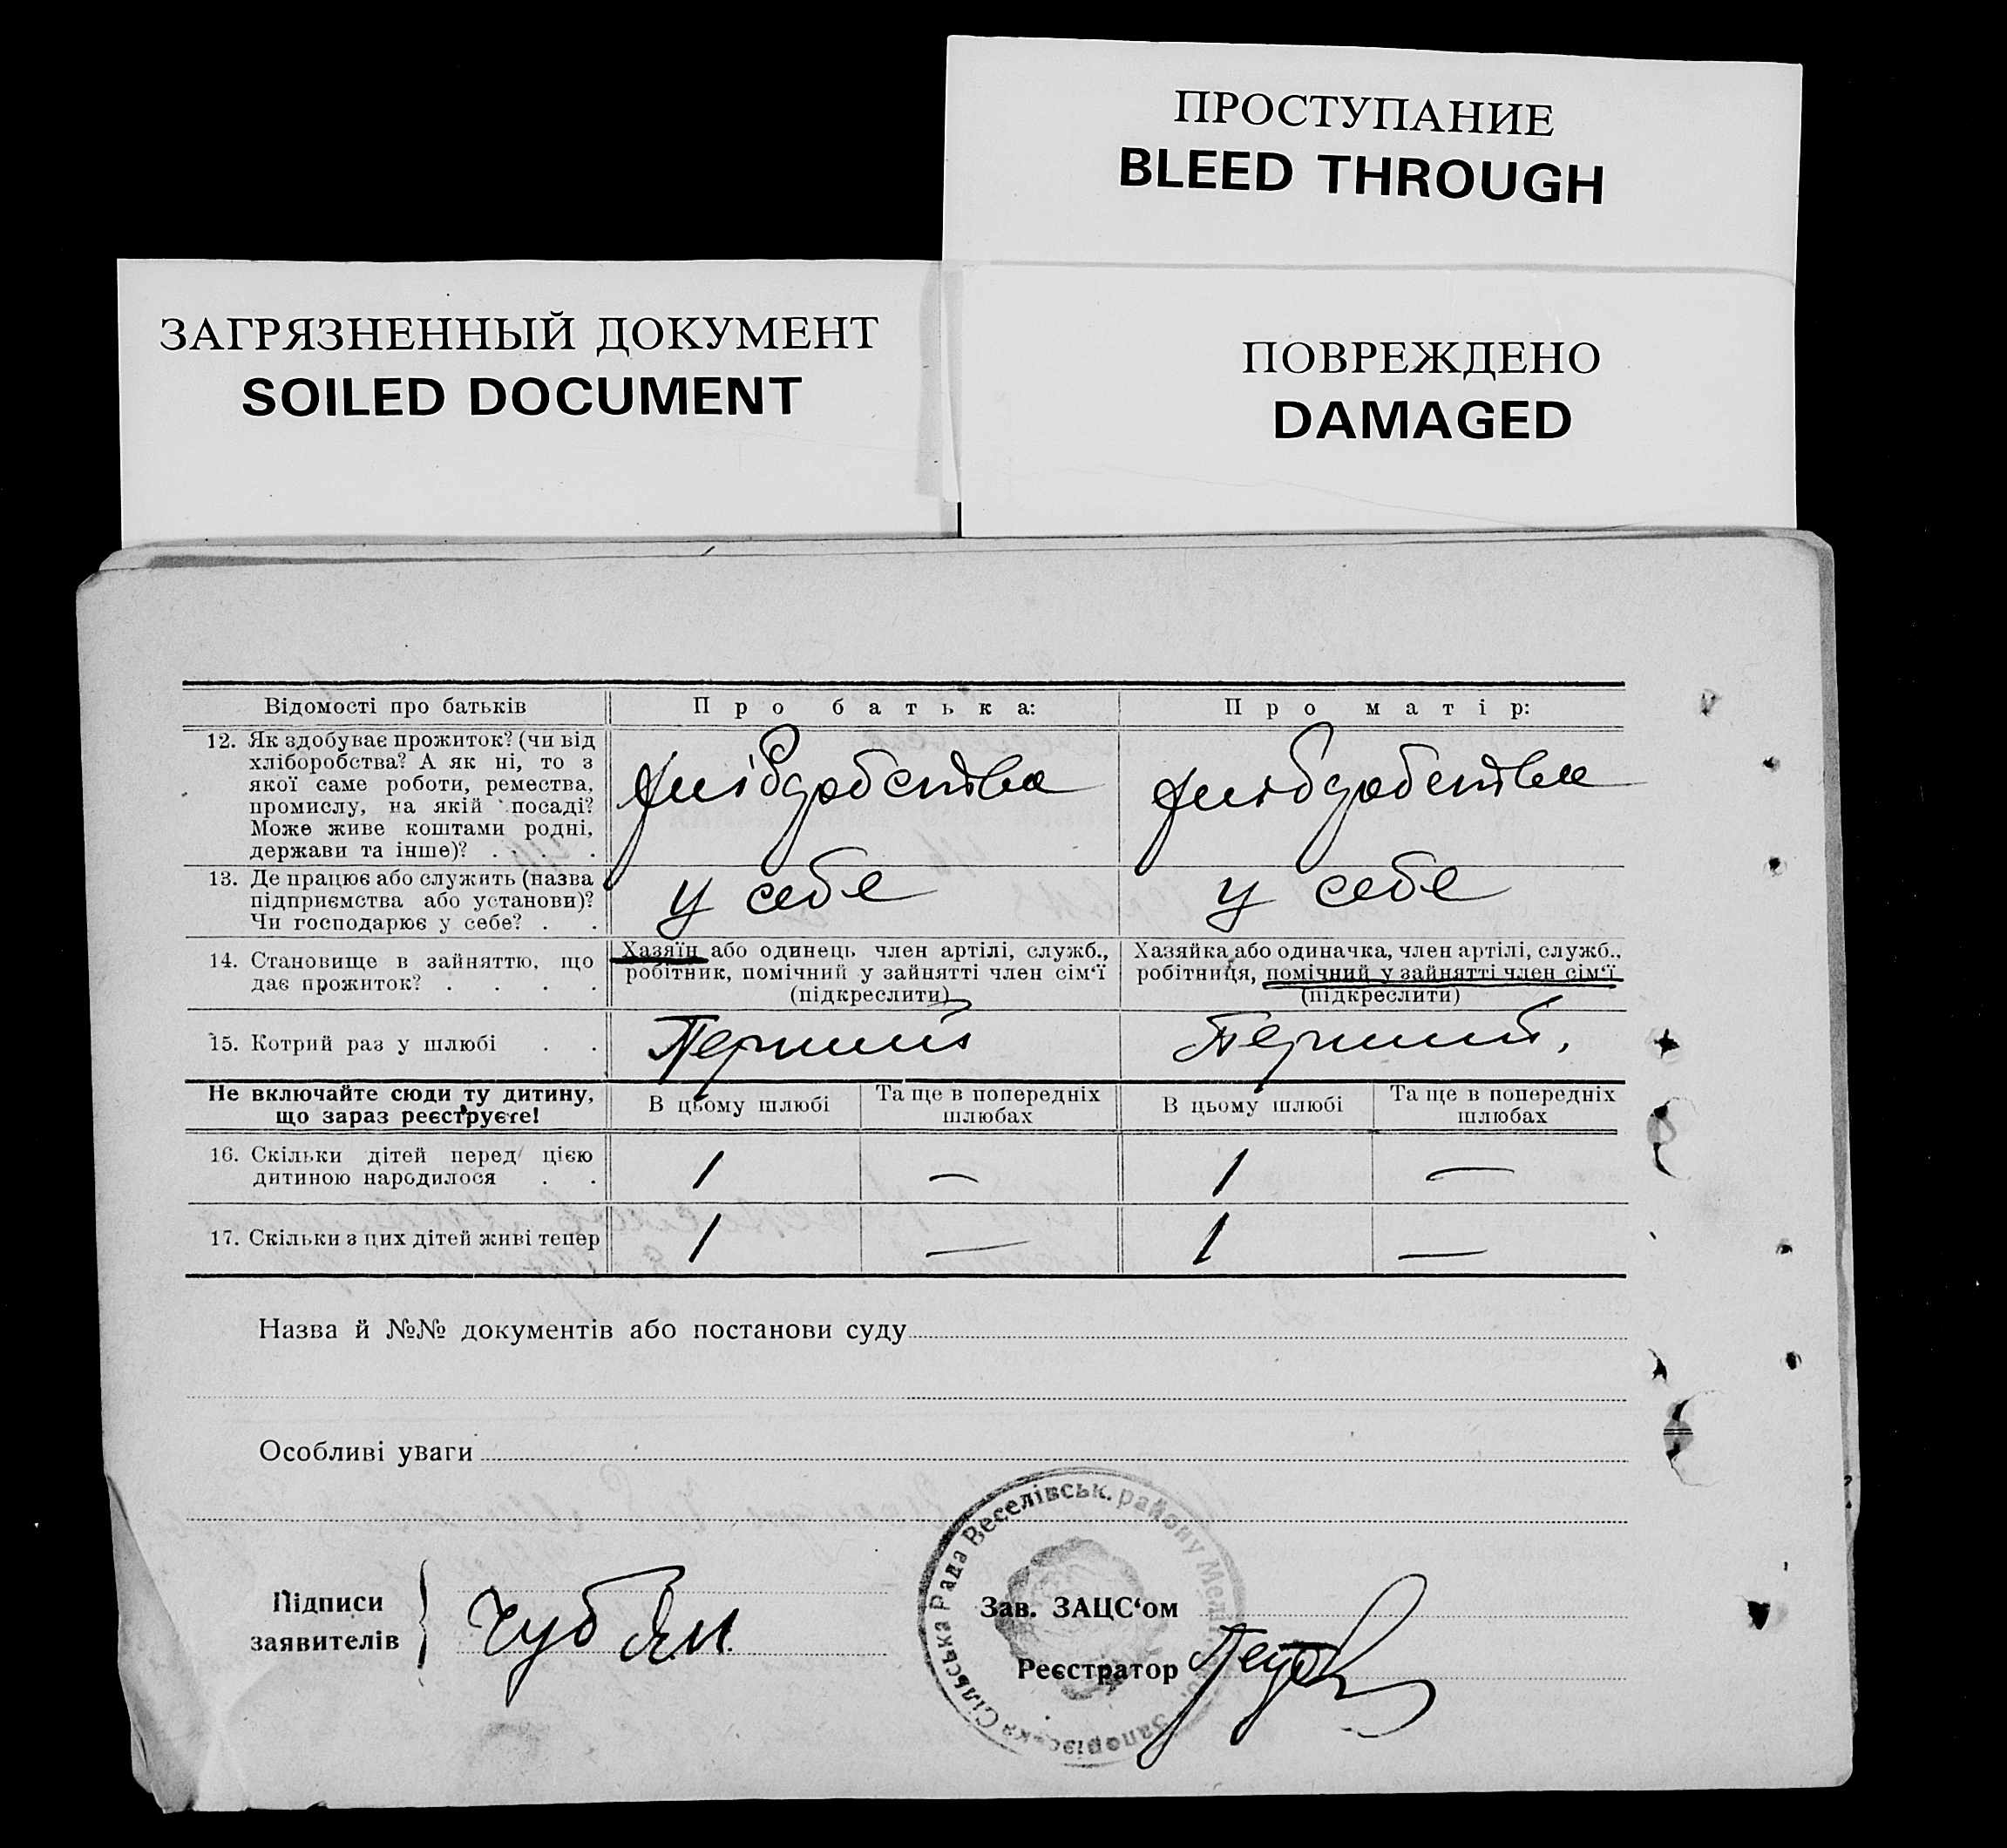 ПРОСТУПАНИЕ
BLEED THROUGH
ЗАГРЯЗНЕННЫЙ ДОКУМЕНТ
SOILED DOCUMENT
ПОВРЕЖДЕНО
DAMAGED
Відомості про батьків
Про батька:
Про матір:
12. Як здобуває прожиток? (чи від
хліборобства? А як ні, то з
якої саме роботи, ремества,
промислу, на якій посаді?
Може живе коштами родні,
держави та інше)? . . . .
хліборобства
хліборобства
13. Де працює або служить (назва
підприємства або установи)?
Чи господарює у себе? . .
у себе
у себе
14. Становище в зайняттю, що
дає прожиток? . . . .
Хазяїн або одинець член артілі, служб.,
робітник, помічний у зайнятті член сім‘ї
(підкреслити)
Хазяйка або одиначка, член артілі, служб.,
робітниця, помічний у зайнятті член сім‘ї
(підкреслити)
15. Котрий раз у шлюбі . .
Перший
Перший,
Не включайте сюди ту дитину,
що зараз реєструєте!
В цьому шлюбі
Та ще в попередніх
шлюбах
В цьому шлюбі
Та ще в попередніх
шлюбах
16. Скільки дітей перед цією
дитиною народилося . .
1
—
1
—
17. Скільки з цих дітей живі тепер
1
—
1
—
Назва й №№ документів або постанови суду
Особливі уваги
Підписи
заявителів
Чуб
Зав. ЗАЦС‘ом
Реєстратор
Запорізська Сільська Рада Веселівськ. району